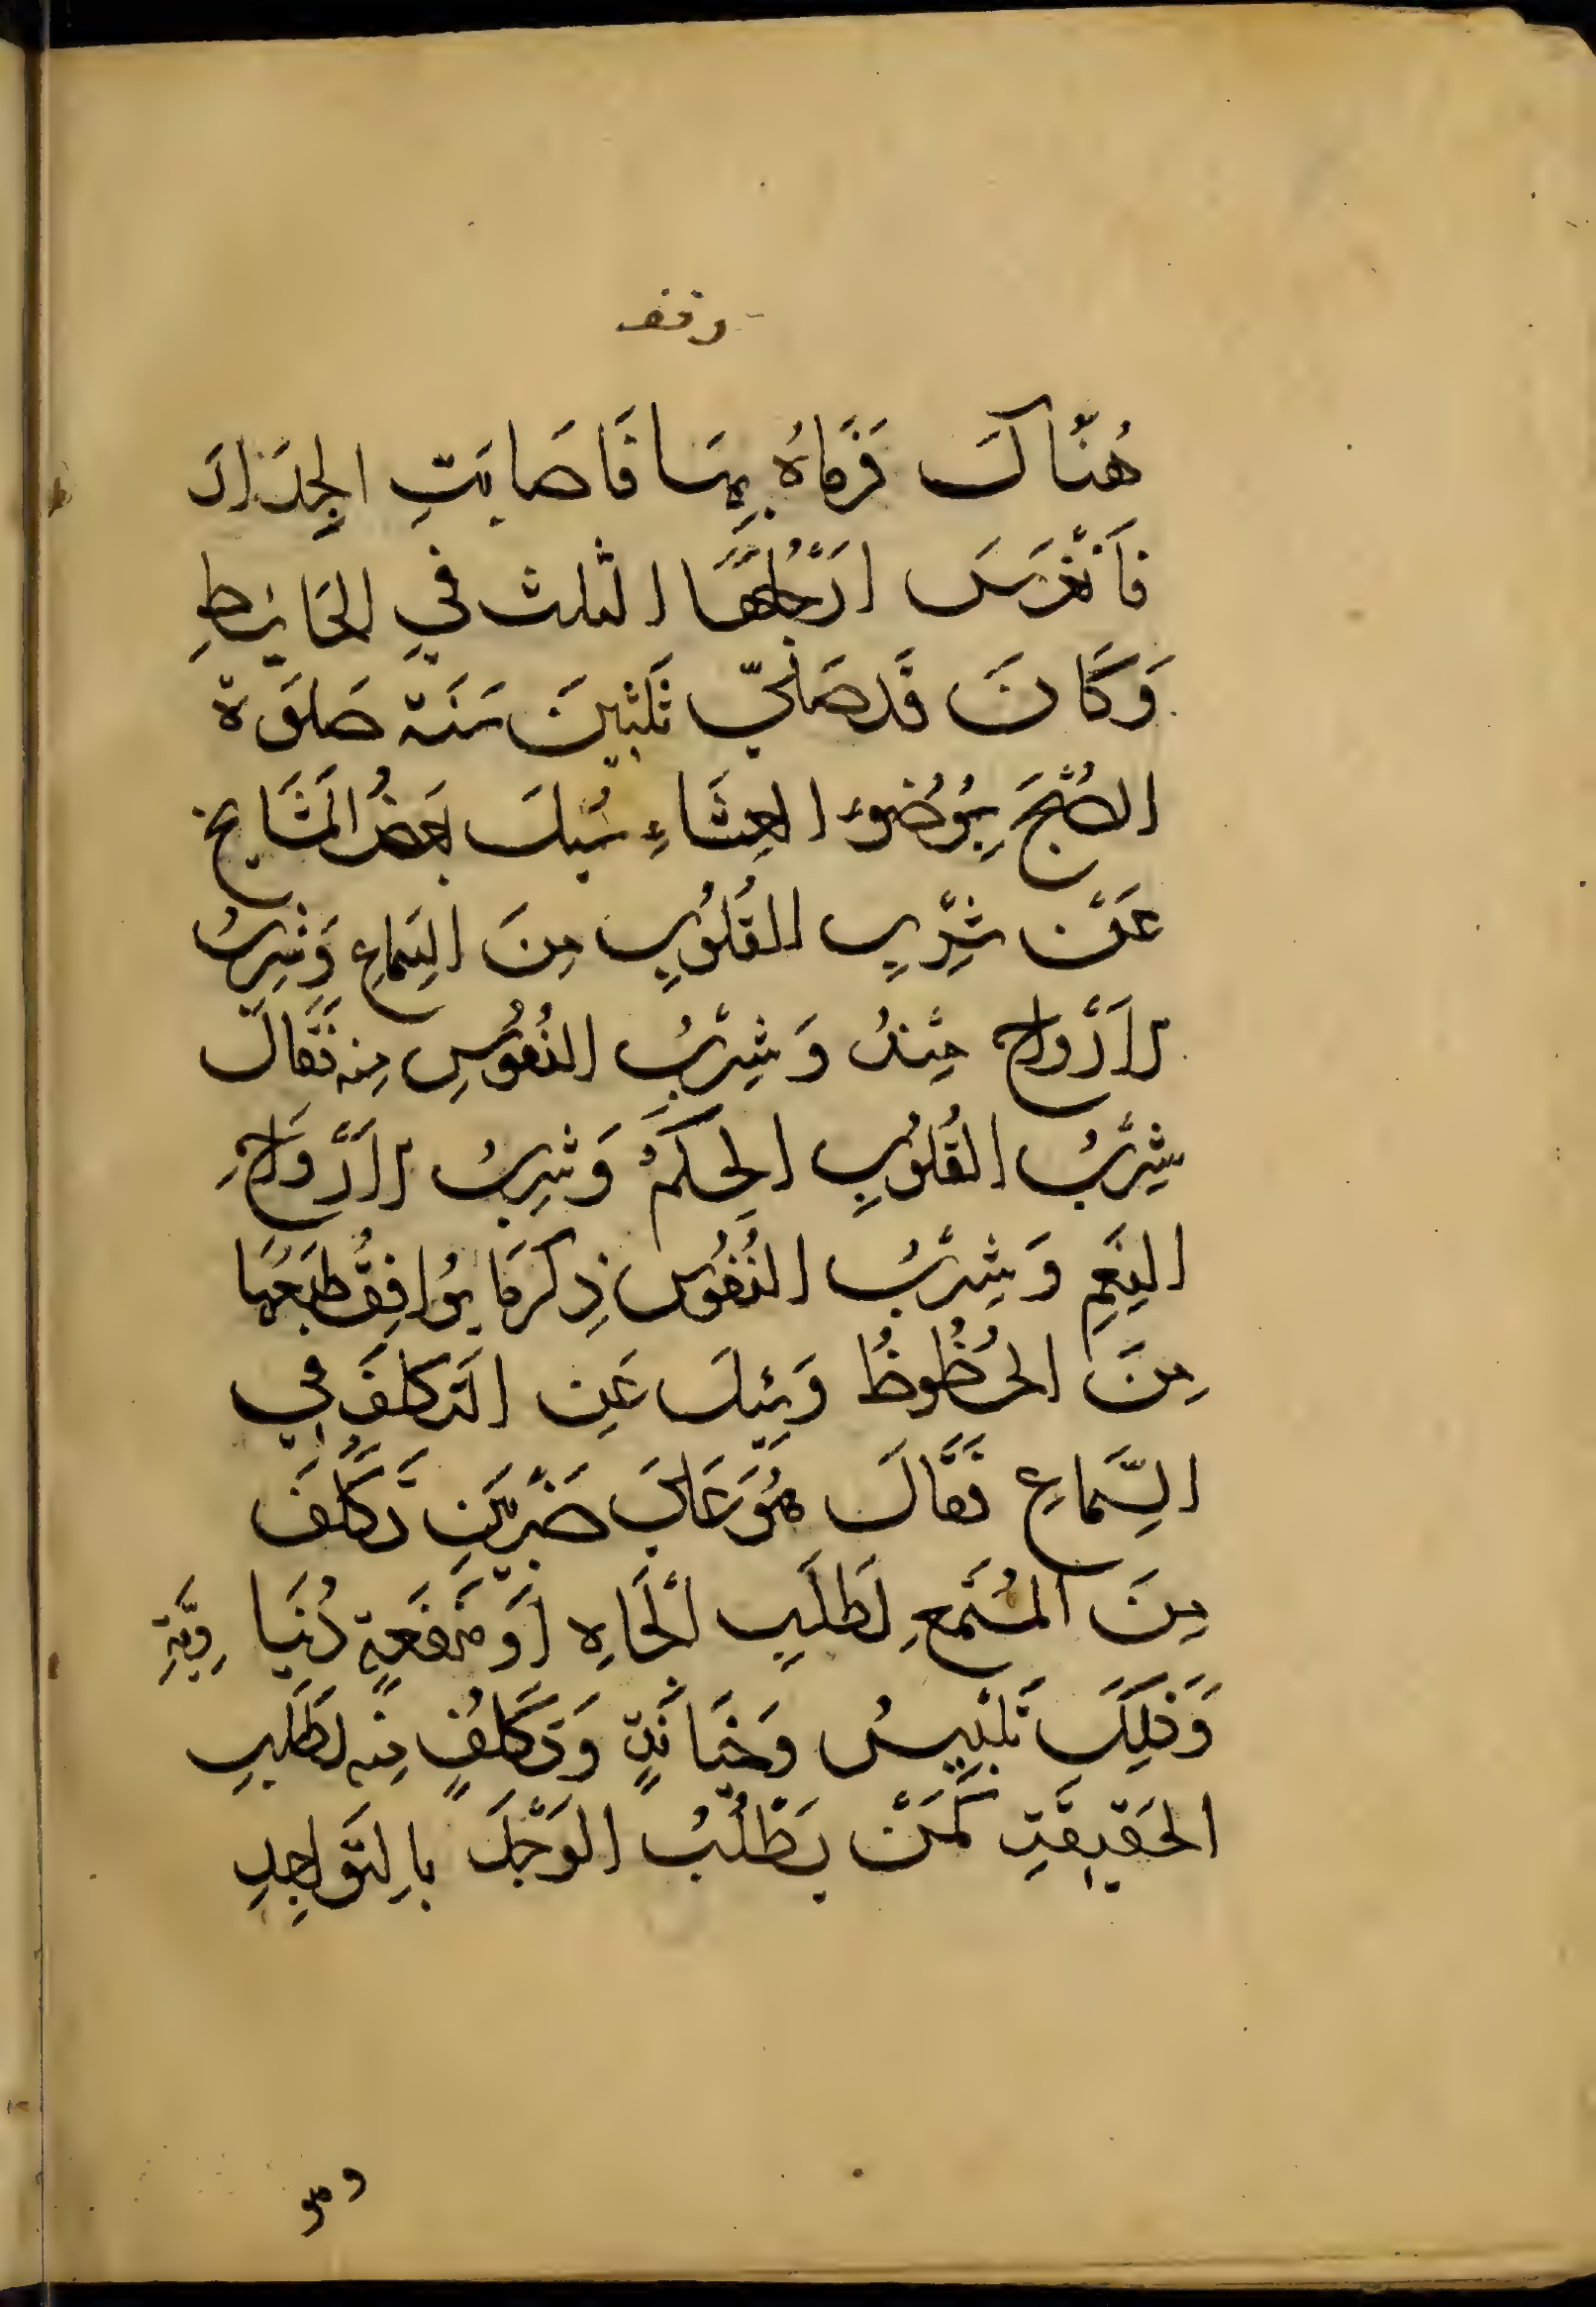 وقف
هُنَّاكَ فَرَمَاهُ بِهَا فَاصَابَتِ الجِدَارَ
فَاَنْغَرَسَ اَرْجُلُهَا الثلث فِي الحَايِطِ
وَكَانَ قَد صَلّي ثَلثِينَ سَنَة صَلَوة
الصُبْحَ بِوُضُوء العِشَاءِ سُيلَ بَعضُ المَشَايخ
عَنْ شِرْبِ القُلُوبِ مِنَ السِمَاعِ وَشِربُ
اﻷَرْوَاحِ مِنْهُ وَشِرْبُ النُفُوسِ مِنه فَقَالَ
شِرْبُ القُلُوبِ الحِكَمُ وَشِربُ اﻷَرْوَاحِ
النِعَمِ وَشِرْبُ النُفُوسِ ذِكرُ مَا يُوَافِقُ طَبعَهَا
مِنَ الحُظُوظُ وَسُيلَ عَنِ التَكلفَ فِي
السِّمَاعِ فَقَالَ هُوَ عَلَي ضَرْبَيْنِ تَكَلُف
مِنَ المُسْتَمعِ لَطلَبِ الجَاهِ اَوْ مَنفَعَةٍ دُنيَا وِيَّةٍ
وَذلِكَ تَلبِيسُ وَخيَانَةٍ وَتَكَلفٍ مِنه لطَلَبِ
الحَقيِقَةِ كَمَنْ يَطْلُبُ الوَجْدَ بالِتَوَاجِدِ
وهو